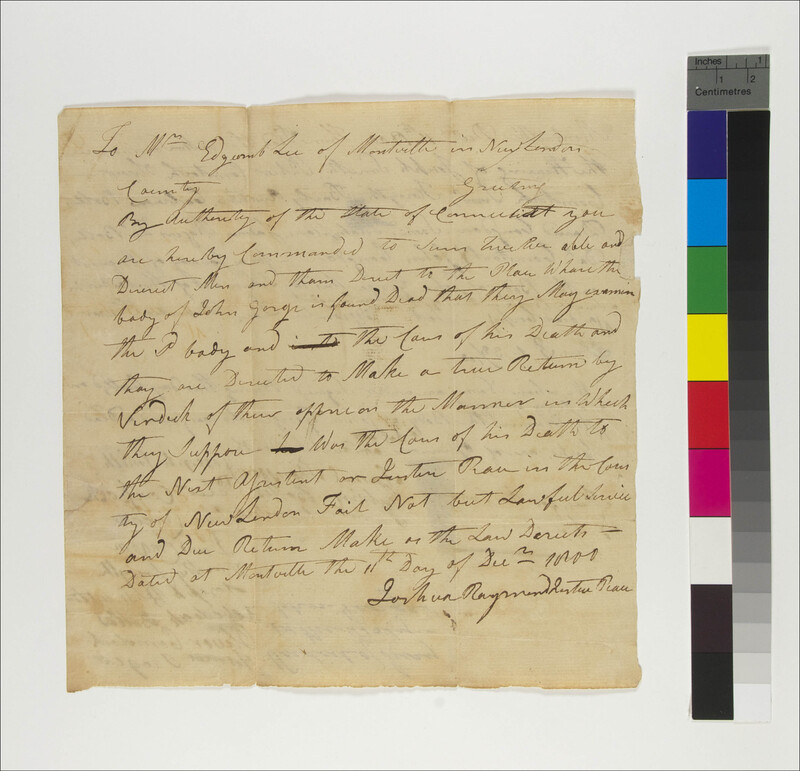 To Mr Edgcomb Lee of Montville in New London
County Greeting
By Authority of the State of Connecticut you
are hereby Commanded to Sum twelve able and
Discrect Men and them Direct to the Place Whare the
body of John Gorge is found Dead that they May examin
the sd body and in to the Caus of his Death and
thay are Directed to Make a true Return by
Virdeck of their oppinion the Manner in Which
they Suppose Was the Caus of his Death to
the Next Assistent or Justice Peace in the Coun
ty of New London Fail Not but Lawful Service
and Due Return Make as the Law Derects —
Dated at Montville the 11th Day of Decm 1800
Joshua Raymond Justice Peace
Inches 1
1 2
Centimetres